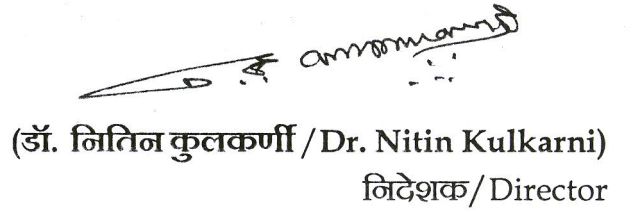 (डॉ. नितिन कुलकर्णी / Dr. Nitin Kulkarni)
निदेशक / Director